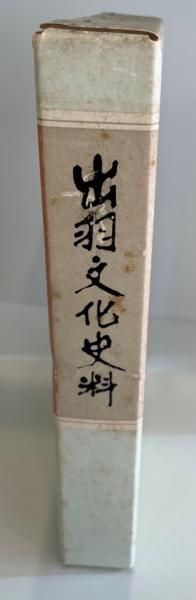 出羽文化史料